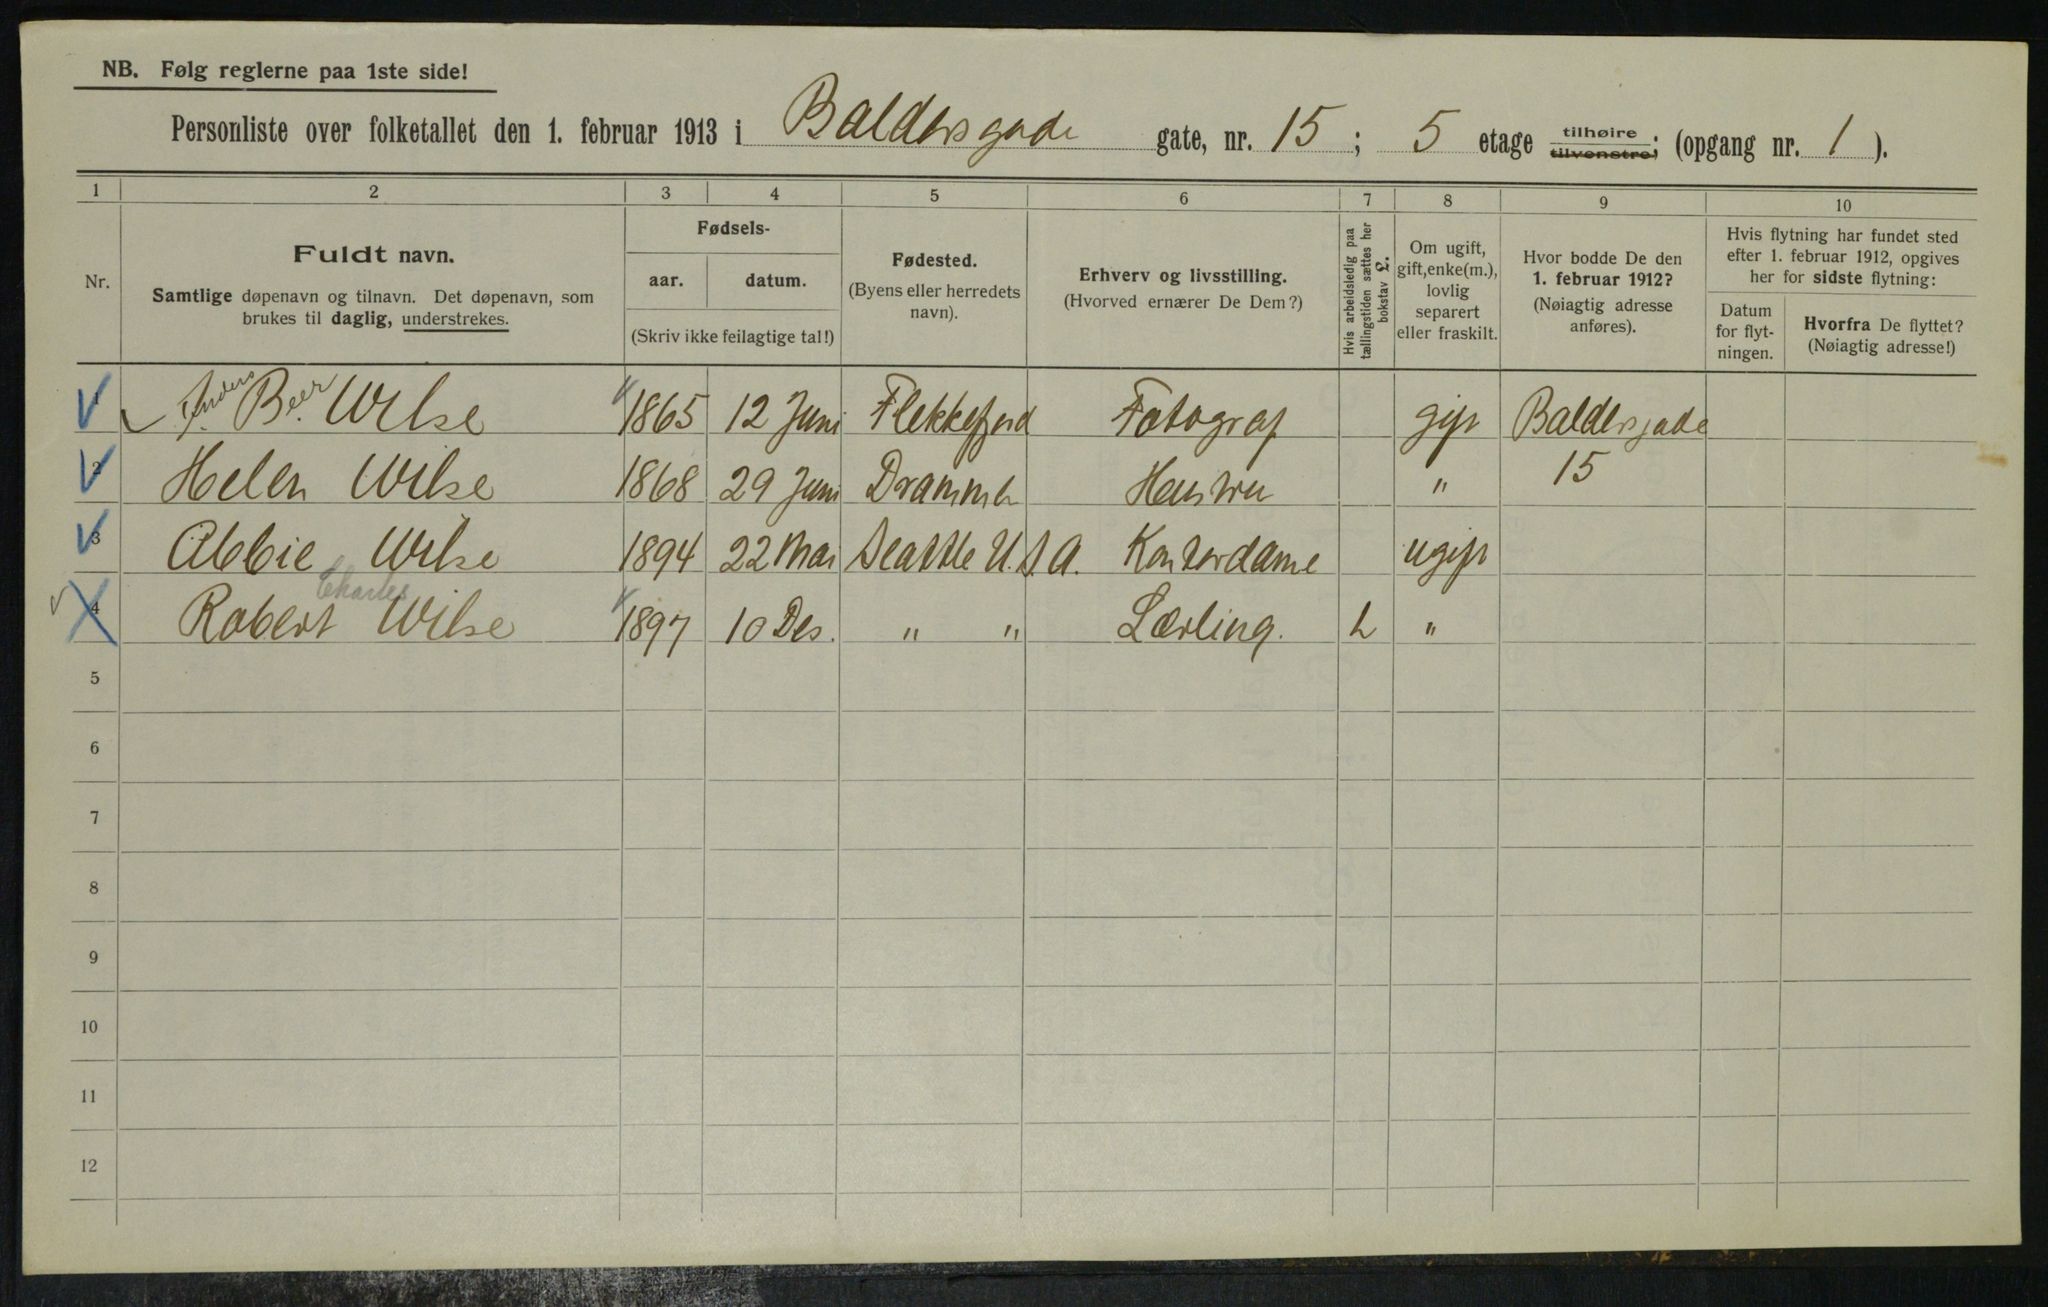 NB. Følg reglerne paa 1ste side!
Personliste over folketallet den 1. februar 1913 i Baldersgade gate, nr. 15; 5 etage tilhøire tilvenstre; (opgang nr. 1).
1 2 3 4 5 6 7 8 9 10
Nr.
Fuldt navn.
Samtlige døpenavn og tilnavn. Det døpenavn, som
brukes til daglig, understrekes.
Fødsels-
aar. datum.
(Skriv ikke feilagtige tal!)
Fødested.
(Byens eller herredets
navn).
Erhverv og livsstilling.
(Hvorved ernærer De Dem?)
Hvis arbeidsledig paa
tællingstiden sættes her
bokstav L.
Om ugift,
gift, enke(m.),
lovlig
separert
eller fraskilt.
Hvor bodde De den
1. februar 1912?
(Nøiagtig adresse
anføres).
Hvis flytning har fundet sted
efter 1. februar 1912, opgives
her for sidste flytning:
Datum
for flyt-
ningen.
Hvorfra De flyttet?
(Nøiagtig adresse!)
Anders Beer
1 A. B. Wilse 1865 12 Juni Flekkefjord Fotograf gift Baldersgade
2 Helen Wilse 1868 29 Juni Drammen Hustru " 15
3 Abbie Wilse 1894 22 Mai Seattle U.S.A. Kontordame ugift
Charles
4 Robert Wilse 1897 10 Des. " " Lærling. L "
5
6
7
8
9
10
11
12